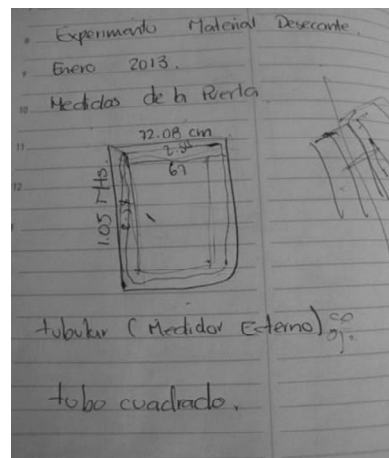 Experimento Material Desecante.
Enero 2013.
Medidas de la Puerta
72.08 cm
2.54
67
1.05 mts.
2.54
tubular (Medidor Externo)
tubo cuadrado.
10
11
12